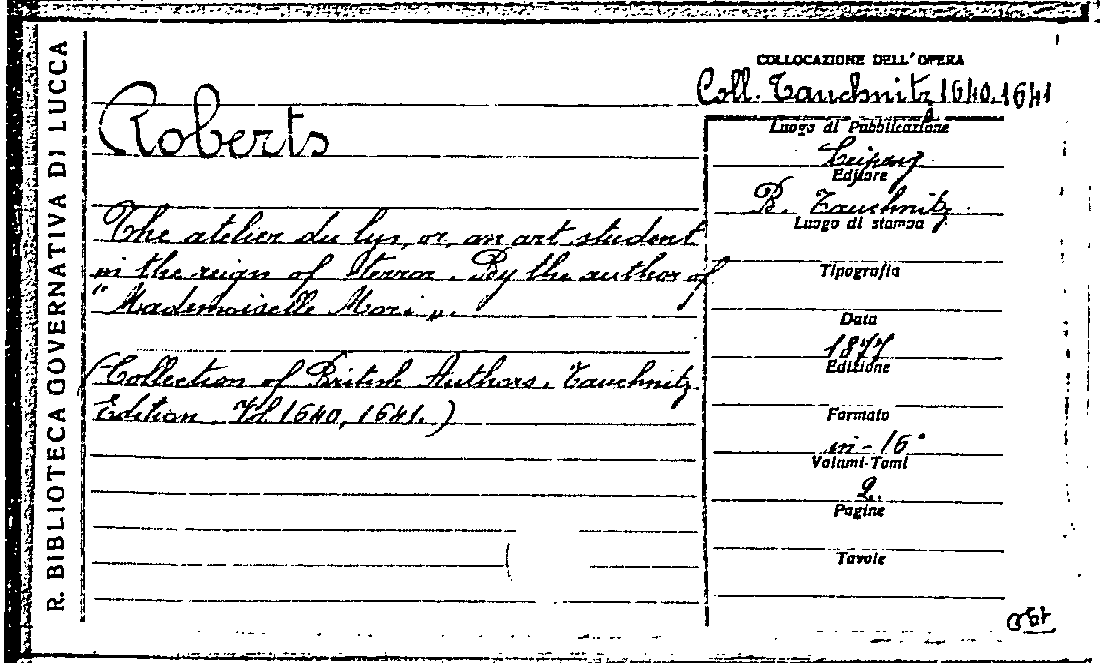 R. BIBLIOTECA GOVERNATIVA DI LUCCA
COLLOCAZIONE DELL'OPERA
Coll. Tauchnitz 1640.1641
Roberts
The atelier du lys, or, an art student
in the reign of terror. By the author of
"Mademoiselle Mori„.
(Collection of British Authors. Tauchnitz
Edition. Vol 1640, 1641.)
Luogo di Pubblicazione
Leipzig
Editore
B. Tauchnitz
Luogo di stampa
Tipografia
Data
1877
Edizione
Formato
in-16°
Volumi-Tomi
2.
Pagine
Tavole